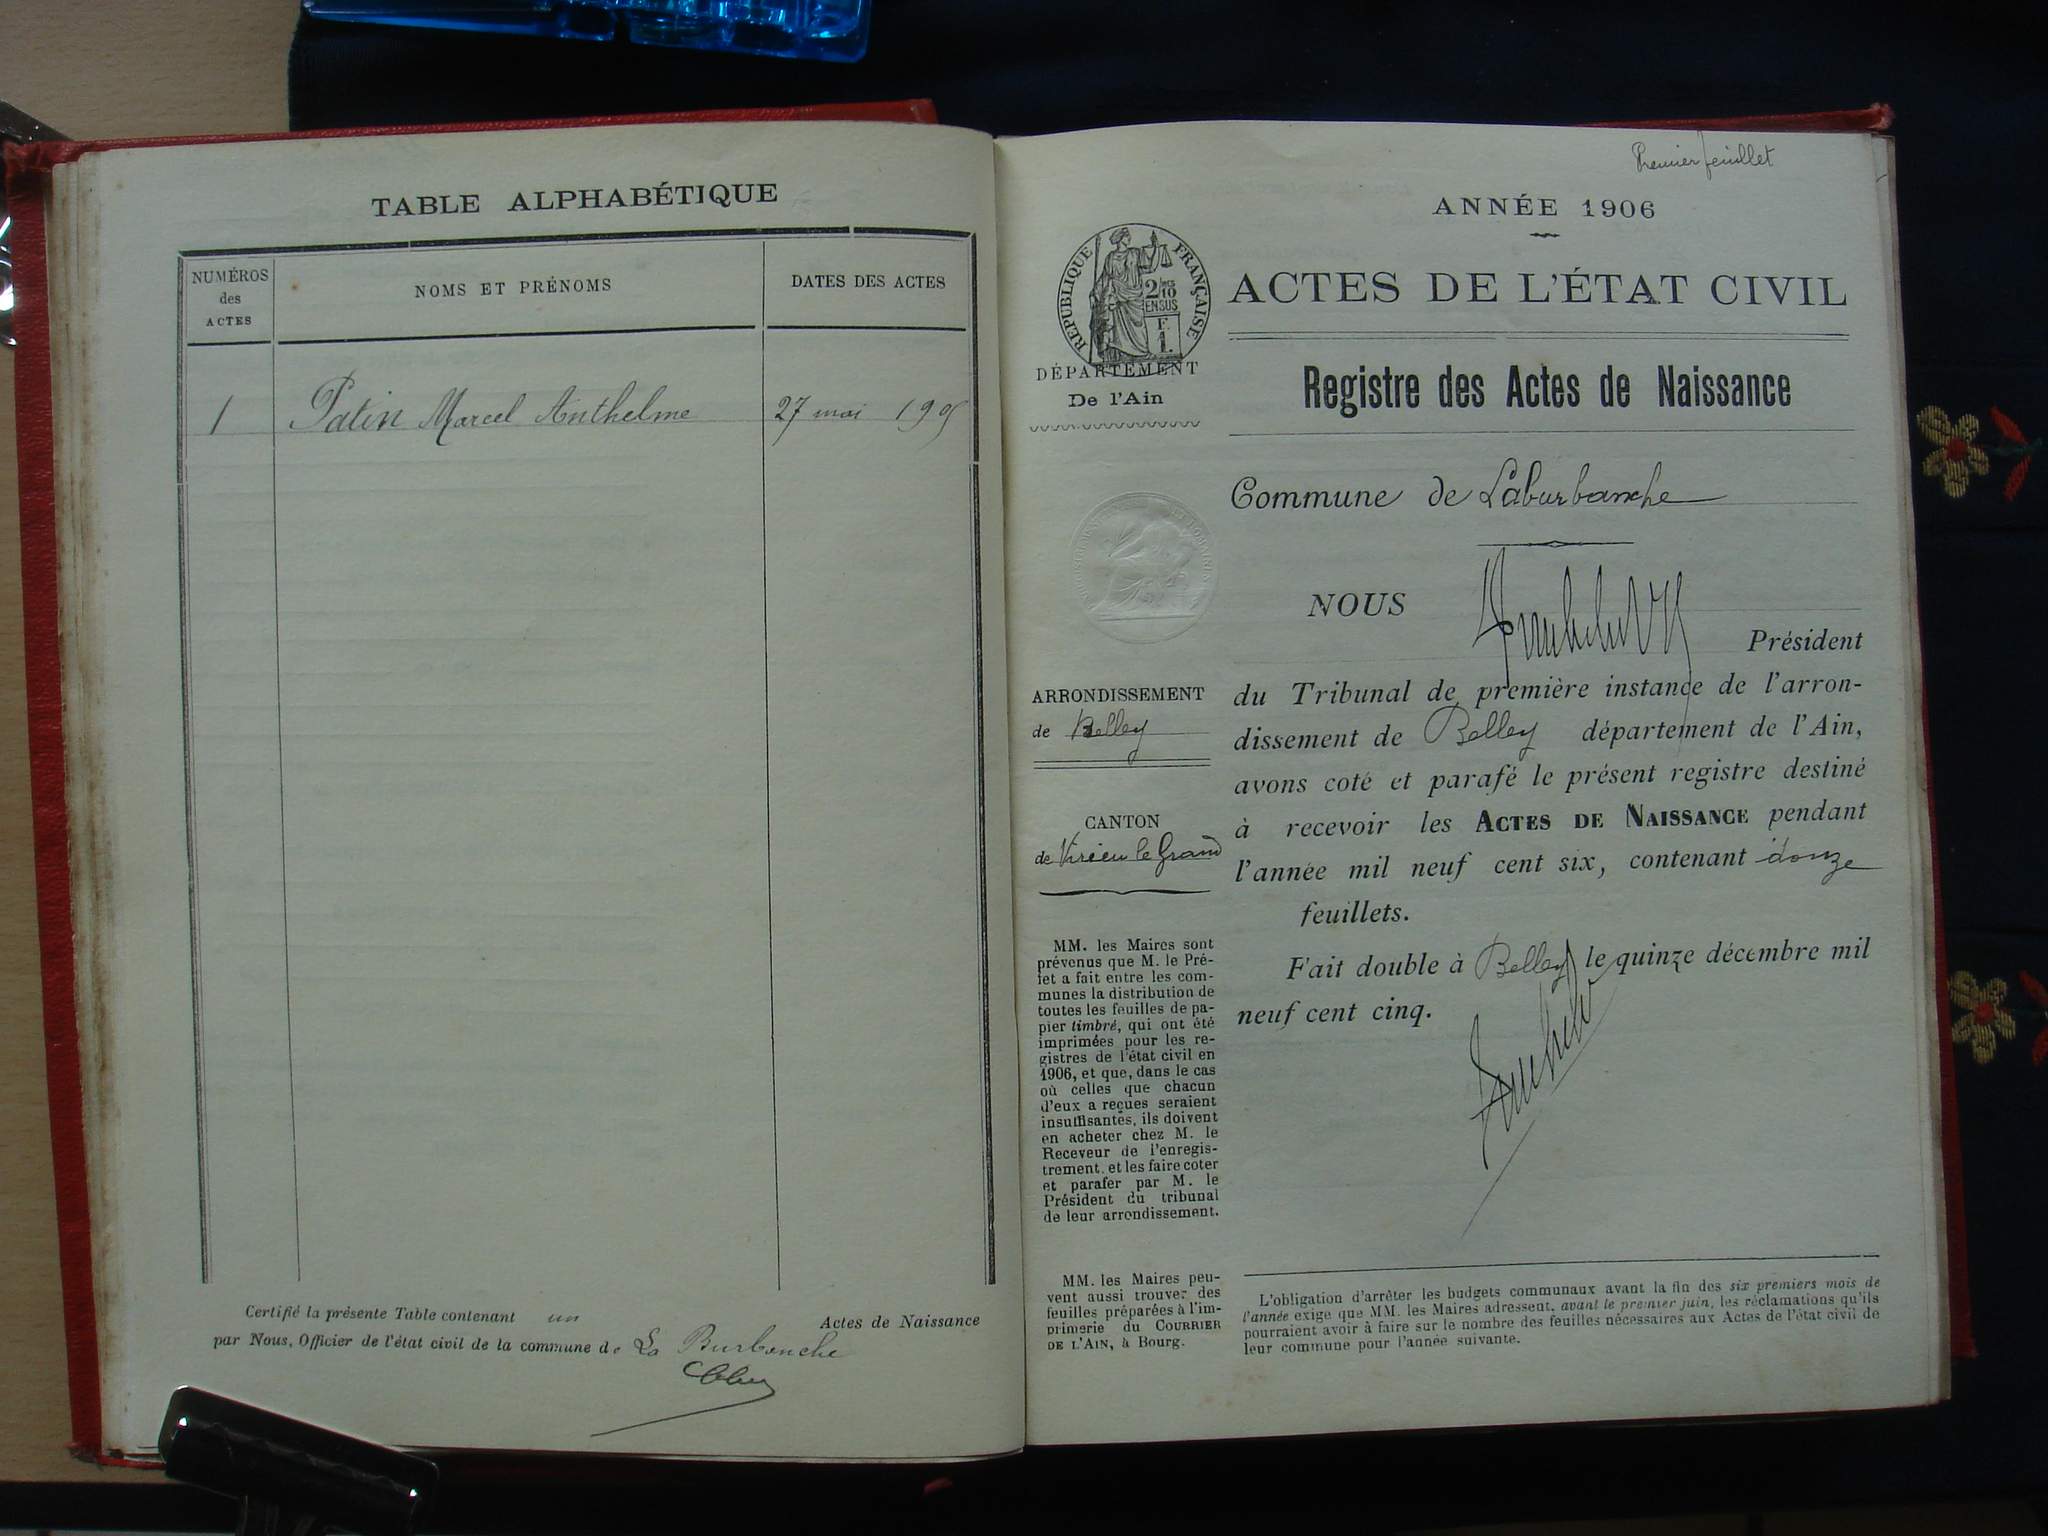 TABLE ALPHABÉTIQUE
NUMÉROS
des
ACTES
NOMS ET PRÉNOMS
DATES DES ACTES
1 Patin Marcel Anthelme 27 mai 1905
Certifié la présente Table contenant un Actes de Naissance
par Nous, Officier de l'état civil de la commune de La Burbanche
Premier feuillet
ANNÉE 1906
RÉPUBLIQUE FRANÇAISE
2/10
EN SUS
F.
1.
ACTES DE L'ÉTAT CIVIL
DÉPARTEMENT
De l'Ain
Registre des Actes de Naissance
Commune de Laburbanche
NOUS
Président
du Tribunal de première instance de l'arron-
dissement de Belley département de l'Ain,
avons coté et parafé le présent registre destiné
à recevoir les ACTES DE NAISSANCE pendant
l'année mil neuf cent six, contenant douze
feuillets.
Fait double à Belley le quinze décembre mil
neuf cent cinq.
ARRONDISSEMENT
de Belley
CANTON
de Virieu le Grand
MM. les Maires sont
prévenus que M. le Pré-
fet a fait entre les com-
munes la distribution de
toutes les feuilles de pa-
pier timbré, qui ont été
imprimées pour les re-
gistres de l'état civil en
1906, et que, dans le cas
où celles que chacun
d'eux a reçues seraient
insuffisantes, ils doivent
en acheter chez M. le
Receveur de l'enregis-
trement, et les faire coter
et parafer par M. le
Président du tribunal
de leur arrondissement.
MM. les Maires peu-
vent aussi trouver des
feuilles préparées à l'im-
primerie du COURRIER
DE L'AIN, à Bourg.
L'obligation d'arrêter les budgets communaux avant la fin des six premiers mois de
l'année exige que MM. les Maires adressent, avant le premier juin, les réclamations qu'ils
pourraient avoir à faire sur le nombre des feuilles nécessaires aux Actes de l'état civil de
leur commune pour l'année suivante.